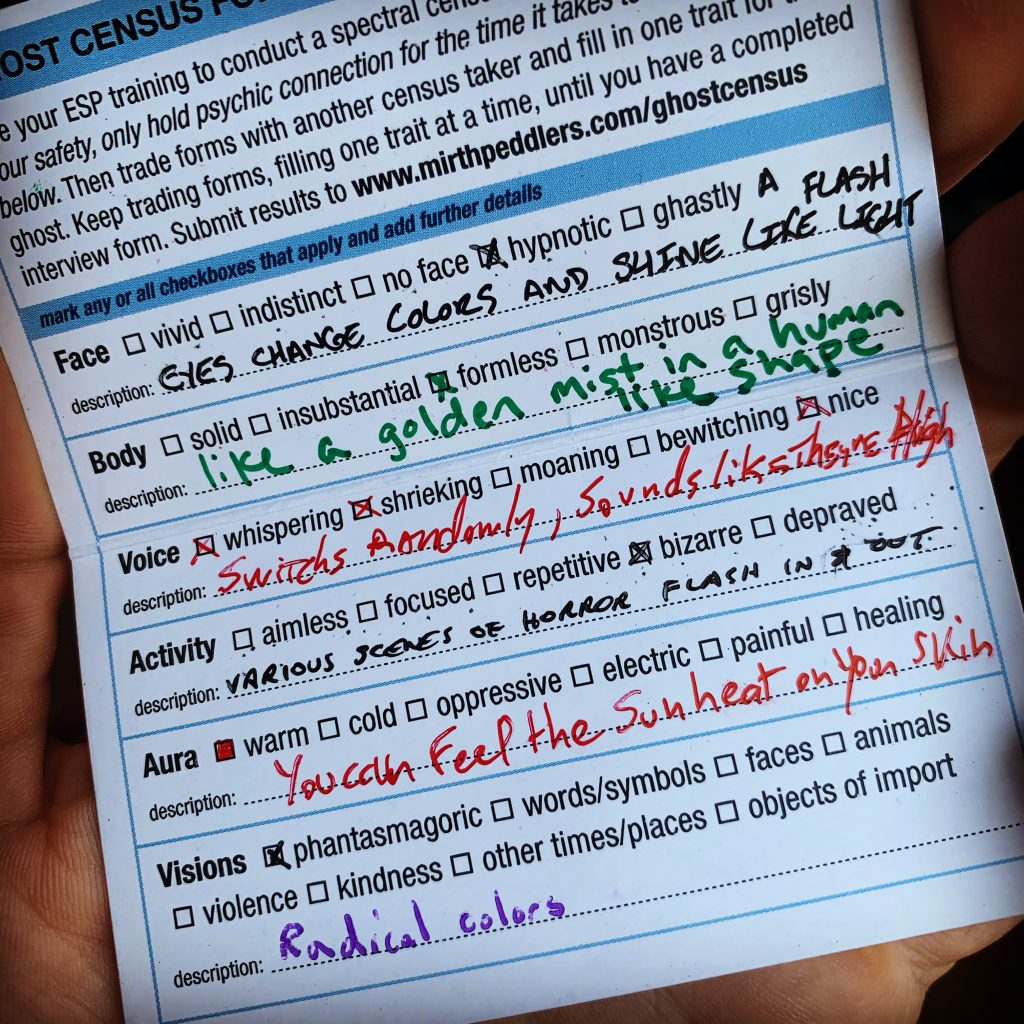 OST CENSUS FO
e your ESP training to conduct a spectral cens
our safety, only hold psychic connection for the time it takes to
below. Then trade forms with another census taker and fill in one trait for
ghost. Keep trading forms, filling one trait at a time, until you have a completed
interview form. Submit results to www.mirthpeddlers.com/ghostcensus
mark any or all checkboxes that apply and add further details
Face ☐ vivid ☐ indistinct ☐ no face ☒ hypnotic ☐ ghastly A FLASH
description: EYES CHANGE COLORS AND SHINE LIKE LIGHT
Body ☐ solid ☐ insubstantial ☒ formless ☐ monstrous ☐ grisly
description: like a golden mist in a human
like shape
Voice ☒ whispering ☒ shrieking ☐ moaning ☐ bewitching ☒ nice
description: Switchs Randomly, Sounds like They're High
Activity ☐ aimless ☐ focused ☐ repetitive ☒ bizarre ☐ depraved
description: VARIOUS SCENES OF HORROR FLASH IN & OUT
Aura ☒ warm ☐ cold ☐ oppressive ☐ electric ☐ painful ☐ healing
description: You can Feel the Sun heat on Your Skin
Visions ☒ phantasmagoric ☐ words/symbols ☐ faces ☐ animals
☐ violence ☐ kindness ☐ other times/places ☐ objects of import
description: Radical colors